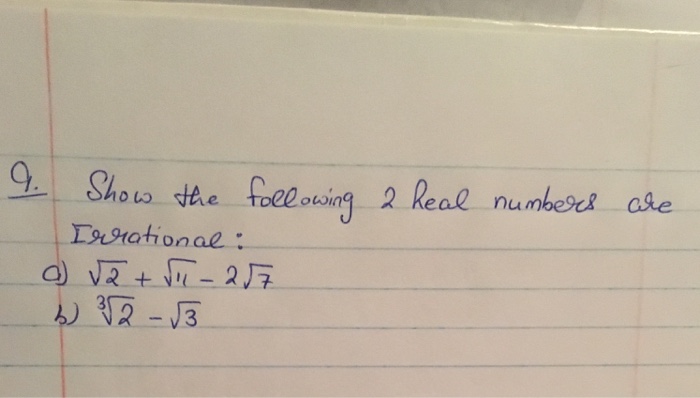 Q. Show the following 2 Real numbers are
Irrational:
a) √2 + √11 - 2√7
b) ³√2 - √3